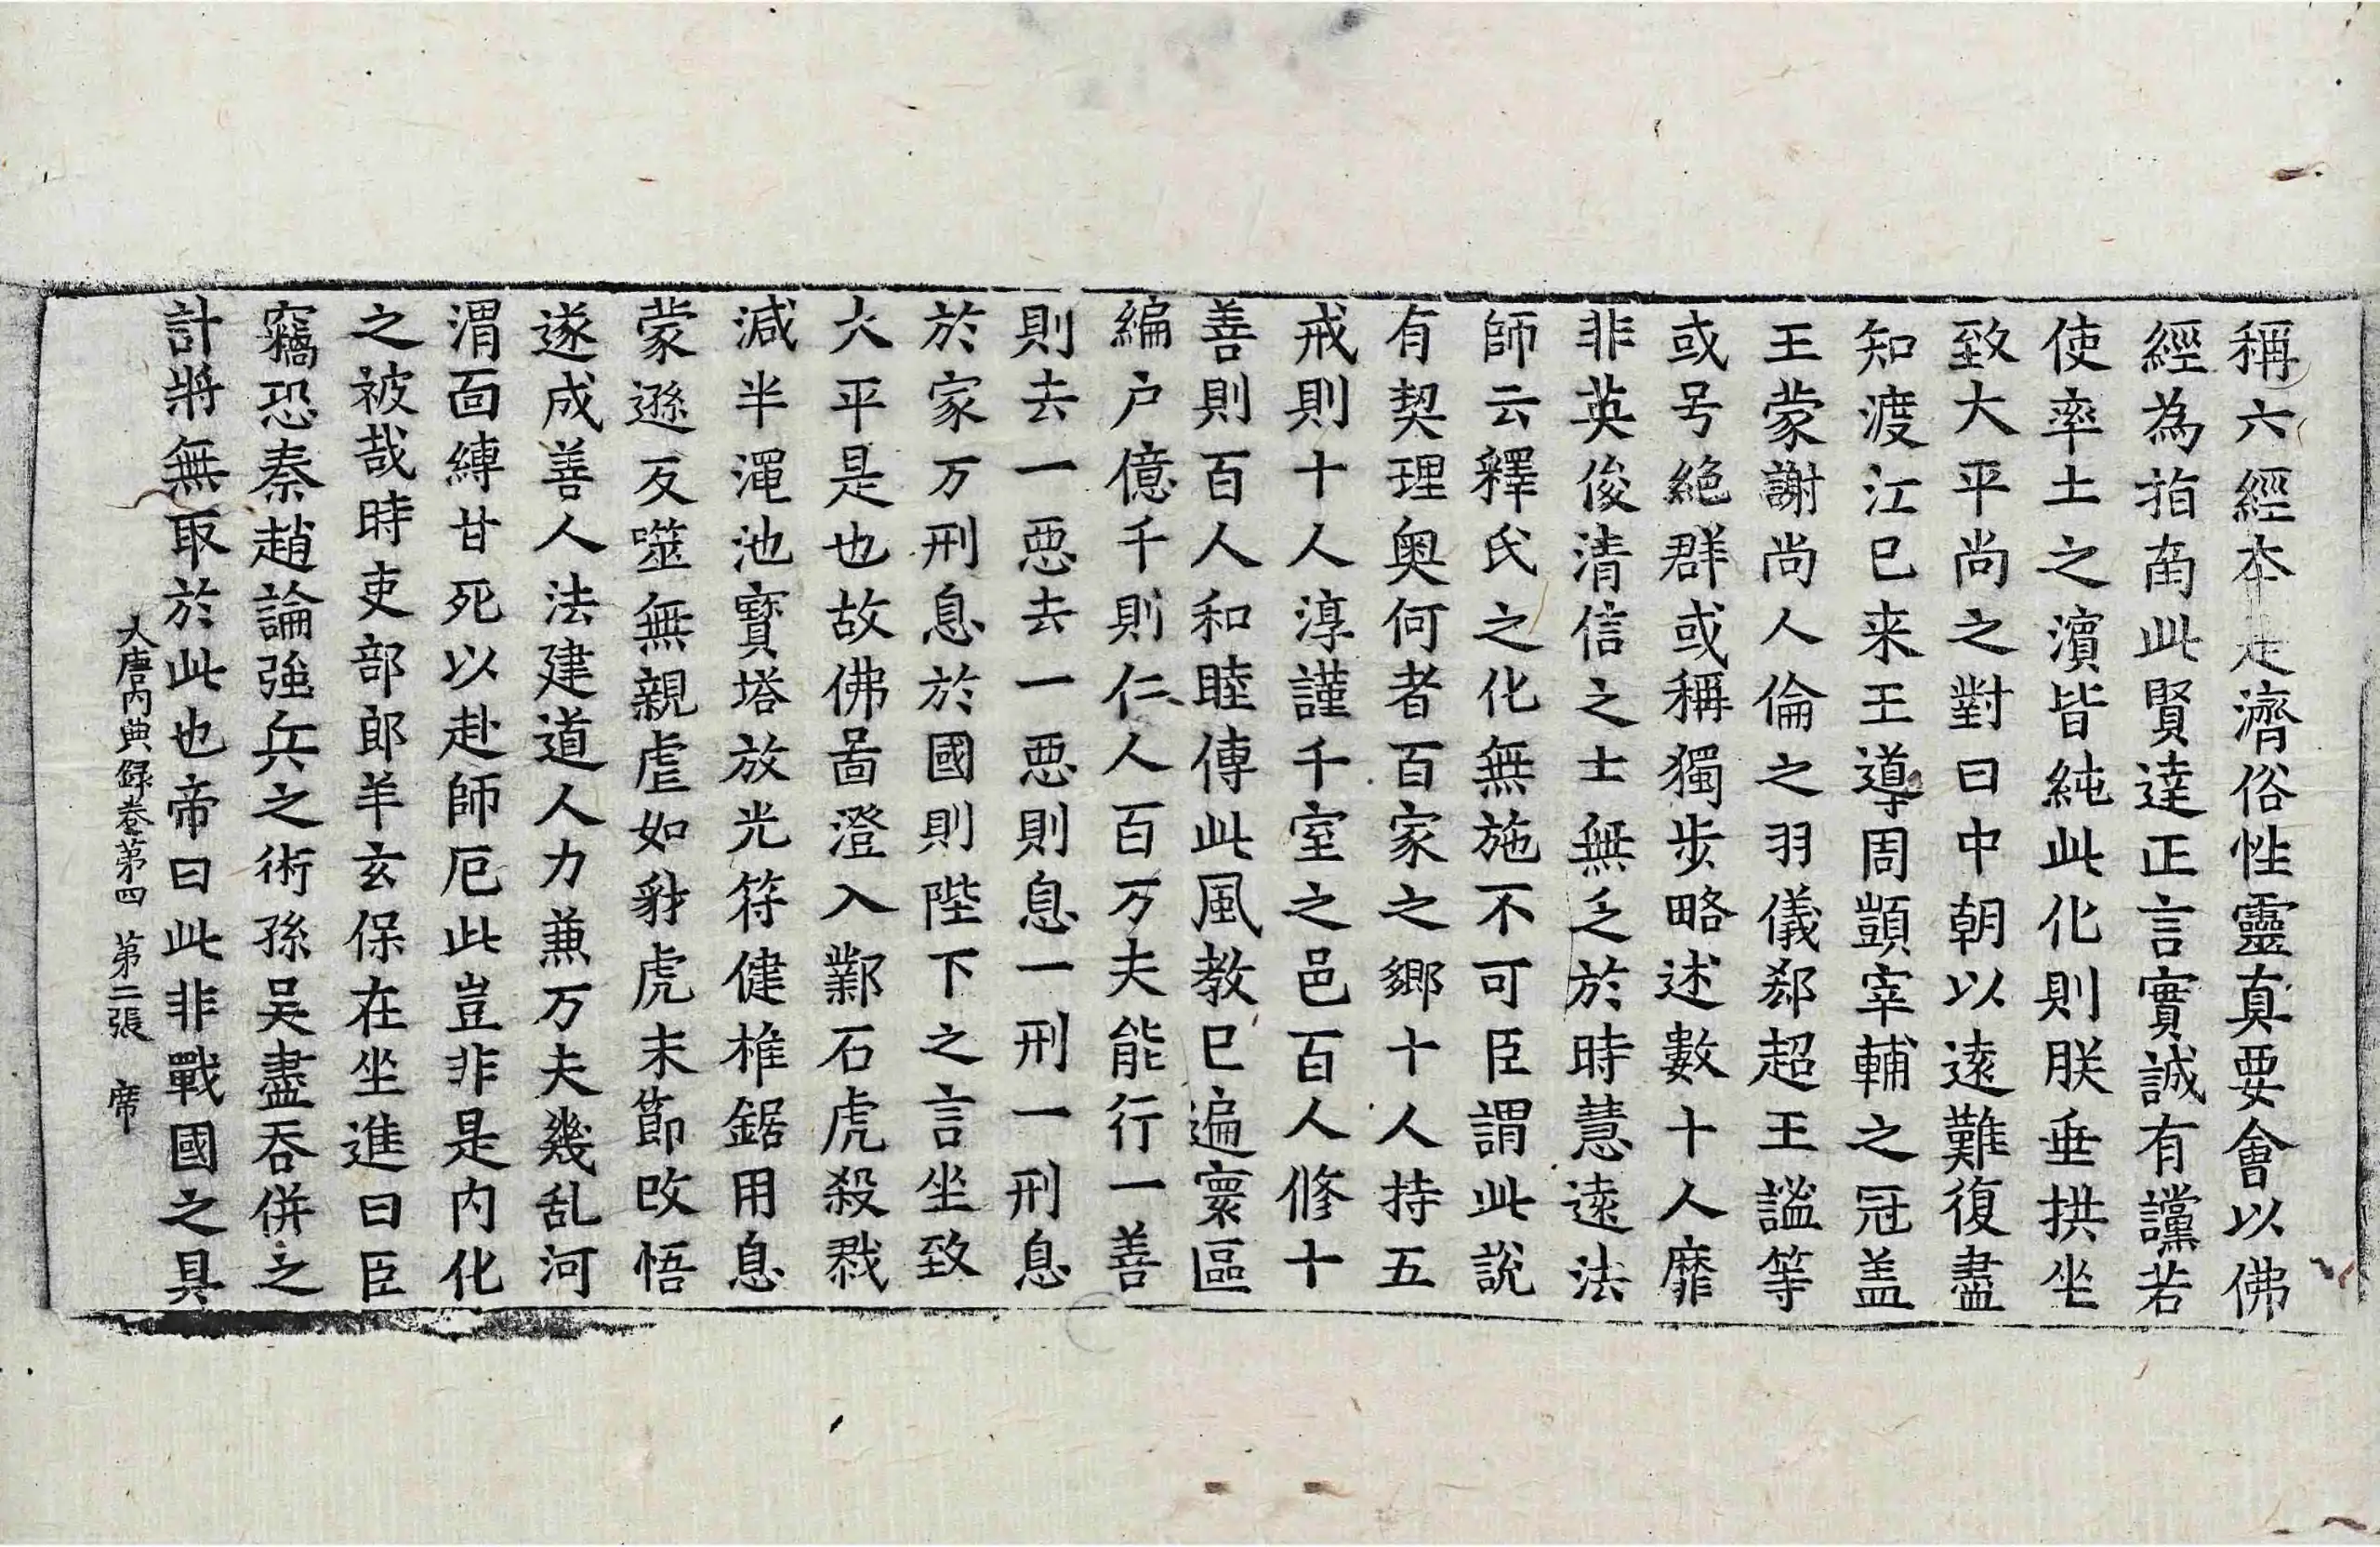 稱六經本是濟俗性靈真要會以佛
經為指南此賢達正言實誠有讜若
使率土之濱皆純此化則朕垂拱坐
致大平尚之對曰中朝以遠難復盡
知渡江已来王導周顗宰輔之冠盖
王蒙謝尚人倫之羽儀郄超王謐等
或号絶群或稱獨步略述數十人靡
非英俊清信之士無乏於時慧遠法
師云釋氏之化無施不可臣謂此說
有契理奥何者百家之鄉十人持五
戒則十人淳謹千室之邑百人修十
善則百人和睦傳此風教已遍寰區
編户億千則仁人百万夫能行一善
則去一惡去一惡則息一刑一刑息
於家万刑息於國則陛下之言坐致
大平是也故佛啚澄入鄴石虎殺戮
減半澠池寳塔放光苻健椎鋸用息
蒙遜反噬無親虐如豺虎末節改悟
遂成善人法建道人力兼万夫幾乱河
渭面縛甘死以赴師厄此豈非是内化
之被哉時吏部郎羊玄保在坐進曰臣
竊恐秦趙論強兵之術孫吴盡吞併之
計將無取於此也帝曰此非戰國之具
大唐内典録卷第四 第二張 席